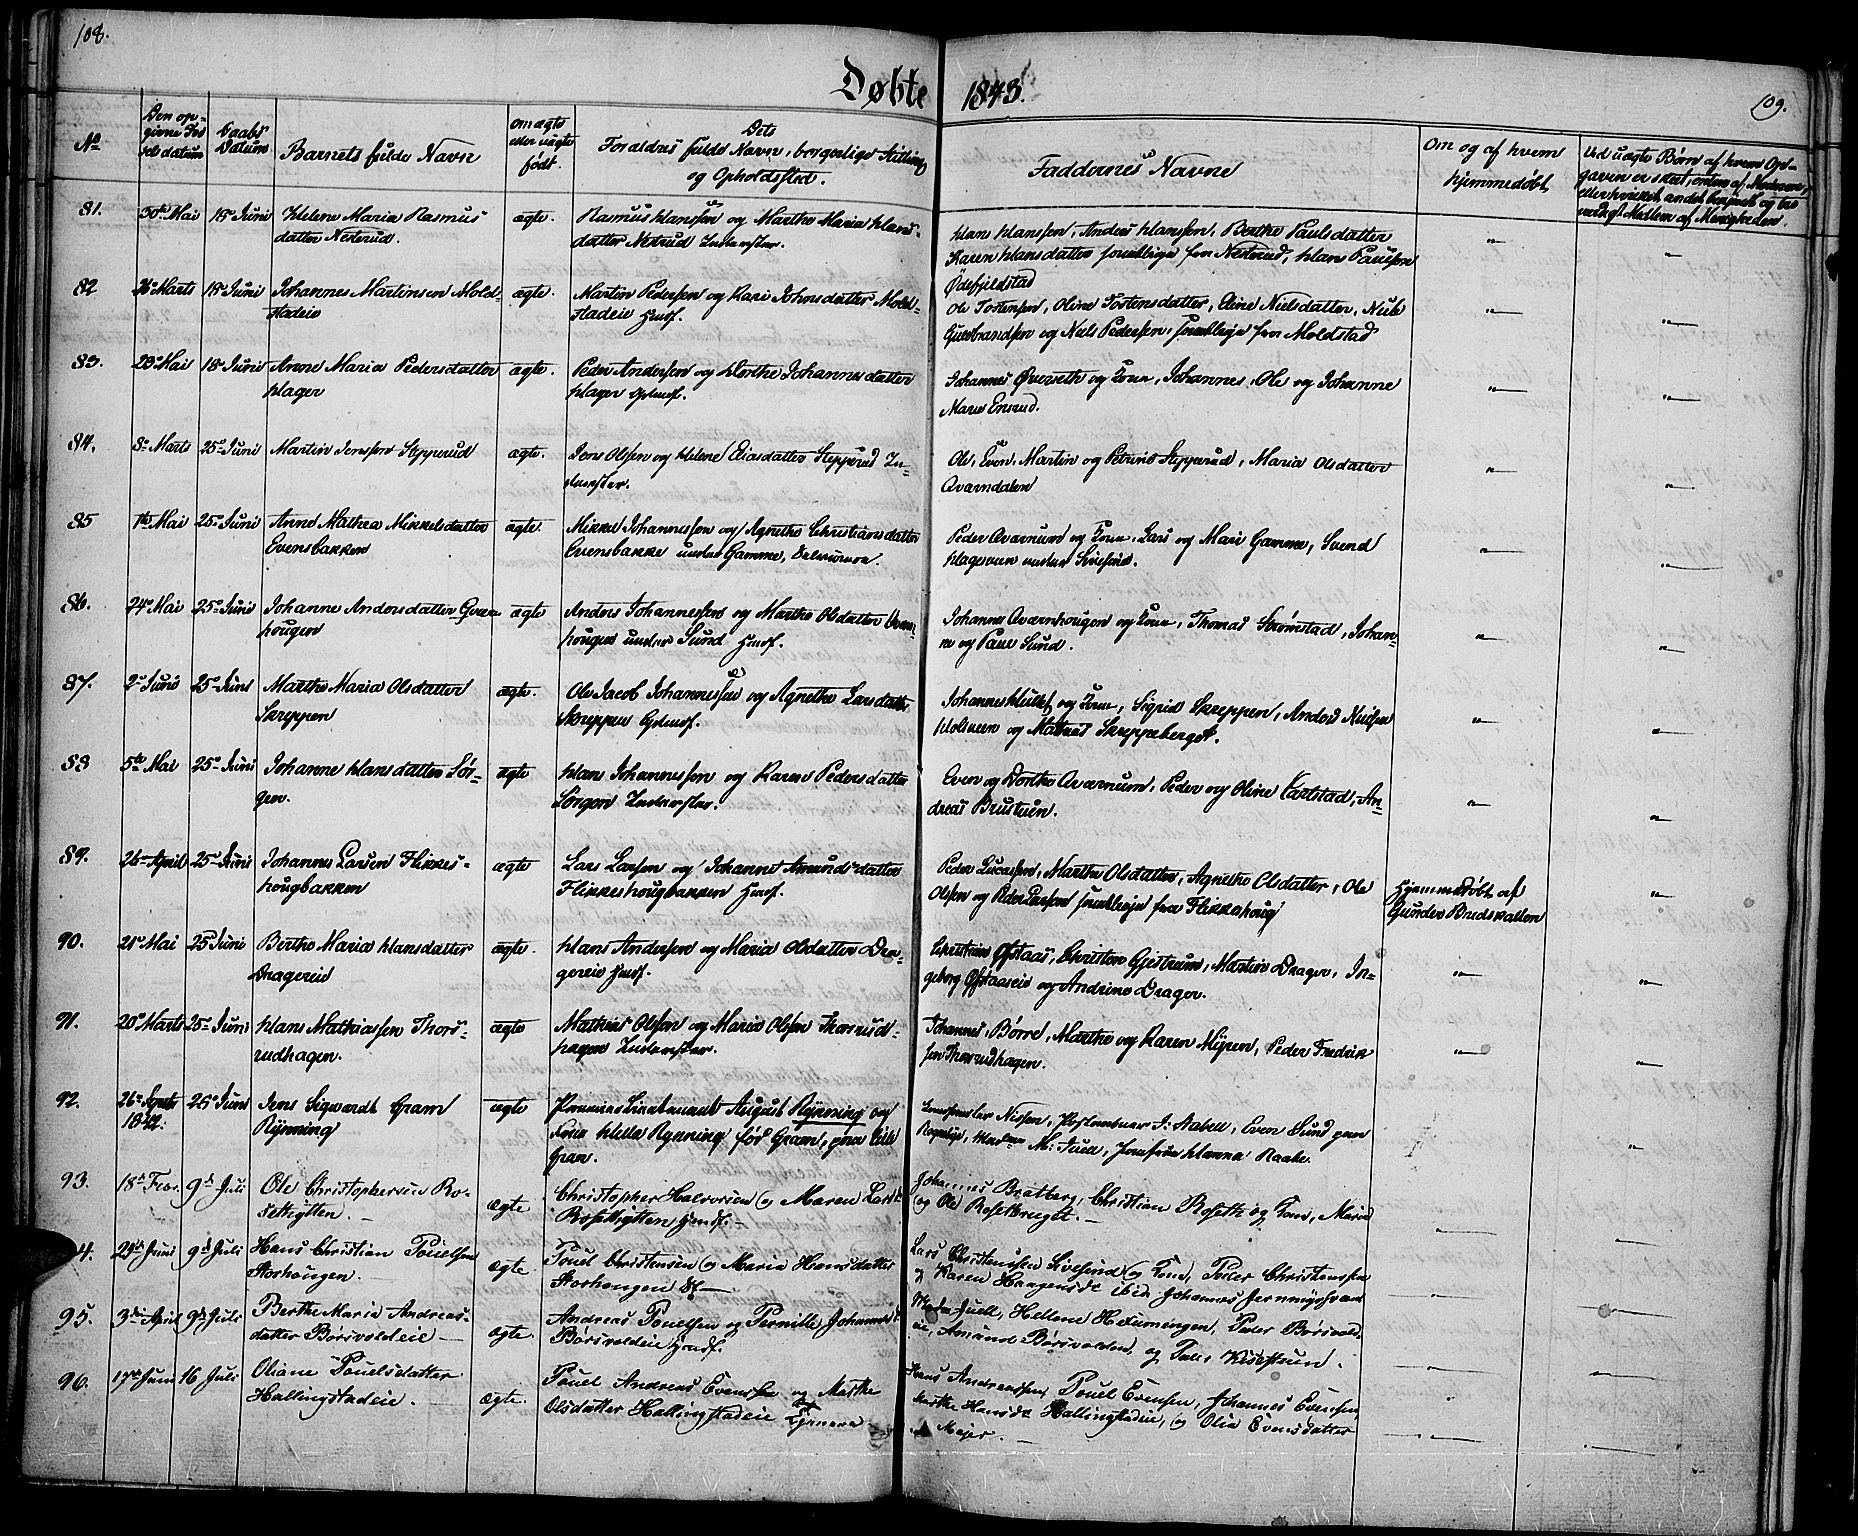 108.
Døbte 1843.
109.
No
Den op-
givne Fød-
sels datum
Daabs
Datum
Barnets fulde Navn
om ægte
eller uægte
født.
Dets
Forældres fulde Navn, borgerlige Stilling
og Opholdsted.
Faddernes Navne
Om og af hvem
hjemmedøbt
Ved uægte Børn af hvem Op-
gaven er skeet, enten af Moderen,
eller hvilket andet bekjendt og tro
værdigt Medlem af Menigheden.
81. 30te Mai 18 Juni Helene Maria Rasmus
datter Nesterud.
ægte.
Rasmus Hanssen og Marthe Maria Hans-
datter Nestrud Inderster.
Hans Hanssen, Anders Hanssen, Berthe Paulsdatter
Karen Hansdatter samtlige fra Nestrud, Hans Paulsen
Ødefjeldstad
82 26 Marts 18 Juni Johannes Martinsen Mold-
stadeie
ægte.
Martin Pedersen og Kari Johnsdatter Mold-
stadeie Huusf.
Ole Tostensen, Oline Tostensdatter, Eline Nielsdatter, Niels
Gulbrandsen og Niels Pedersen, samtlige fra Moldstad
83. 28 Mai 18 Juni Anne Maria Pedersdatter
Hager
ægte.
Peder Andersen og Dorthe Johannesdatter
Hager Gdmdf.
Johannes Øverseth og Kone, Johannes, Ole og Johanne
Marie Ensrud.
84. 8 Marts 25 Juni Martin Jenssen Stepperud
ægte.
Jens Olsen og Helene Eliasdatter Stepperud In-
derster.
Ole, Even, Martin og Petrine Stepperud, Maria Olsdatter
Qværndalen
85 1te Mai 25 Juni Anne Mathea Mikkelsdatter
Evensbakken
ægte.
Mikkel Johannessen og Agnethe Christiansdatter
Evensbakke under Gamme,
Peder Qvarnum og Kone, Lars og Mari Gamme, Svend
Hageveen under
86. 24 Mai 25 Juni Johanne Andersdatter Qværn
hougen
ægte
Anders Johannessen og Marthe Olsdatter Qværn-
hougen under Sund Huusf.
Johannes Qværnhougen og Kone, Thomas Strømstad, Johan-
ne og Paul Sund.
87. 2 Juni 25 Juni Marthe Maria Olsdatter
Skreppen
ægte.
Ole Jacob Johannessen og Agnethe Larsdatter
Skreppen Gdmdf.
Johannes Hullet og Kone, Sigrid Skreppen, Anders Knudsen
Holsveen og Mathias Skreppeberget.
88 5te Mai 25 Juni Johanne Hansdatter Sør-
gen.
ægte
Hans Johannessen og Karen Pedersdatter
Sørgen Inderster.
Even og Dorthe Qværnum, Peder og Oline Carlstad, An-
dreas Brustuen.
89. 26 April 25 Juni Johannes Larsen Flikkes-
hougbakken
ægte
Lars Larsen og Johanne Amundsdatter
Flikkeshougbakken Huusf.
Peder Lucassen, Marthe Olsdatter, Agnethe Olsdatter, Ole
Olsen og Peder Larssen samtlige fra Flikkehoug
Hjemmedøbt af
Gunder Budskatten
90. 21 Mai 25 Juni Berthe Maria Hansdatter
Dragereie
ægte.
Hans Andersen og Maria Olsdatter Dra-
gereie Huusf.
Christian Ofstaas, Christen Gjestrum, Martin Drager, In-
geborg Ofstaaseie og Andrine Drager.
91. 20 Marts 25 Juni Hans Mathiassen Thors-
rudhagen.
ægte
Mathias Olsen og Maria Olsen Thorsrud-
hagen Inderster.
Johannes Børre, Marthe og Karen Myren, Peder Fredrik
sen Thorsrudhagen.
92. 26
1842. 25 Juni Jens Sigvardt Gram
Rynning
ægte
Premierlieutenant August Rynning og
Kone Helle Rynning før Gram, paa Lille
Gran.
Nissen, J. Aabel, Even Sund paa
M. Juell, Jomfrue Hanna Raabe.
93. 18de Febr. 9de Juli Ole Christophersen Ro-
sethytten. —
ægte
Christopher Halvorsen og Maren Larsd.
Rosethytten Huusf. —
Johannes Bratberg, Christian Roseth og Kone, Maria
og Ole Rosetbruget. —
94. 24de Juni 9de Juli Hans Christian Pouelsen
Storhaugen.
ægte
Pouel Christensen og Maria Hansdatter
Storhaugen
Lars Christenssen Livesind og Kone, Peder Christenssen
og Karen Haagensdr ibid Johannes
95. 3die April 9de Juli Berthe Maria Andreas-
datter Børsvoldeie —
ægte.
Andreas Pouelsen og Pernille Johannesd.
Børsvoldeie Huusf.
Juell, Hellene Peder Børsvold-
eie, Amund Børsvolden, og Peder
96. 17de Juni 16 Juli Oliane Pouelsdatter
Hallingstadeie. —
ægte.
Pouel Andreas Evenssen og Marthe
Olsdatter Hallingstadeie
Hans Andreassen, Pouel Evensen, Johannes Evensen,
Marthe Hansdr. Hallingstadeie, og Olia Evensdatter
Mejer. —